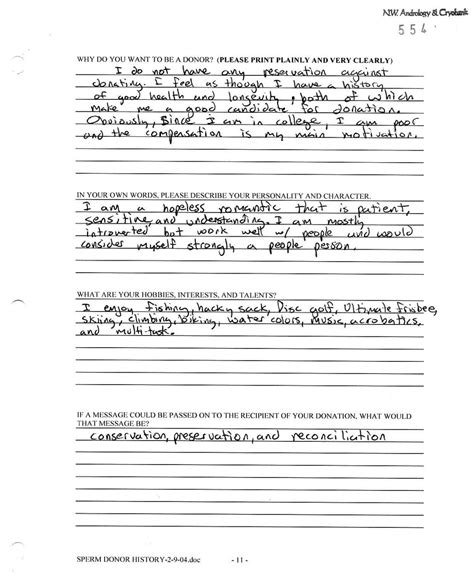 NW. Andrology & Cryobank
554
WHY DO YOU WANT TO BE A DONOR? (PLEASE PRINT PLAINLY AND VERY CLEARLY)
I do not have any reservation against
donating. I feel as though I have a history
of good health and longevity, both of which
make me a good candidate for donation.
Obviously, since I am in college, I am poor
and the compensation is my main motivation.
IN YOUR OWN WORDS, PLEASE DESCRIBE YOUR PERSONALITY AND CHARACTER.
I am a hopeless romantic that is patient,
sensitive, and understanding. I am mostly
introverted but work well w/ people and would
consider myself strongly a people person.
WHAT ARE YOUR HOBBIES, INTERESTS, AND TALENTS?
I enjoy fishing, hacky sack, Disc golf, Ultimate frisbee,
skiing, climbing, biking, water colors, music, acrobatics,
and multi-task.
IF A MESSAGE COULD BE PASSED ON TO THE RECIPIENT OF YOUR DONATION, WHAT WOULD
THAT MESSAGE BE?
conservation, preservation, and reconciliation
SPERM DONOR HISTORY-2-9-04.doc - 11 -